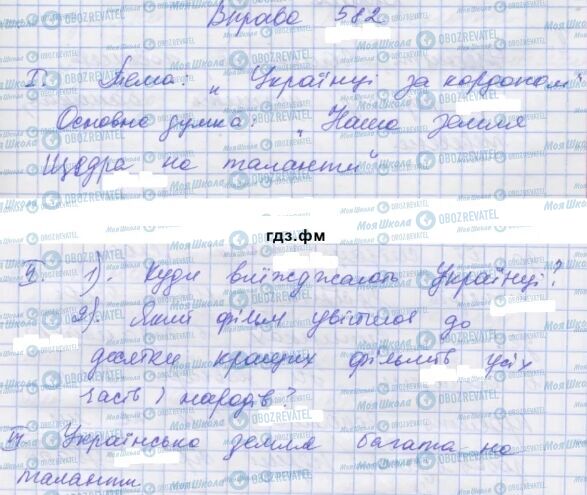 Вправа 582
I. Тема: „Українці за кордоном"
Основна думка: „Наша земля
щедра на таланти"
гдз.фм
II. 1). Куди виїжджають Українці?
2). Який фільм увійшов до
десятки кращих фільмів усіх
часів і народів?
IV Українська земля багата на
таланти